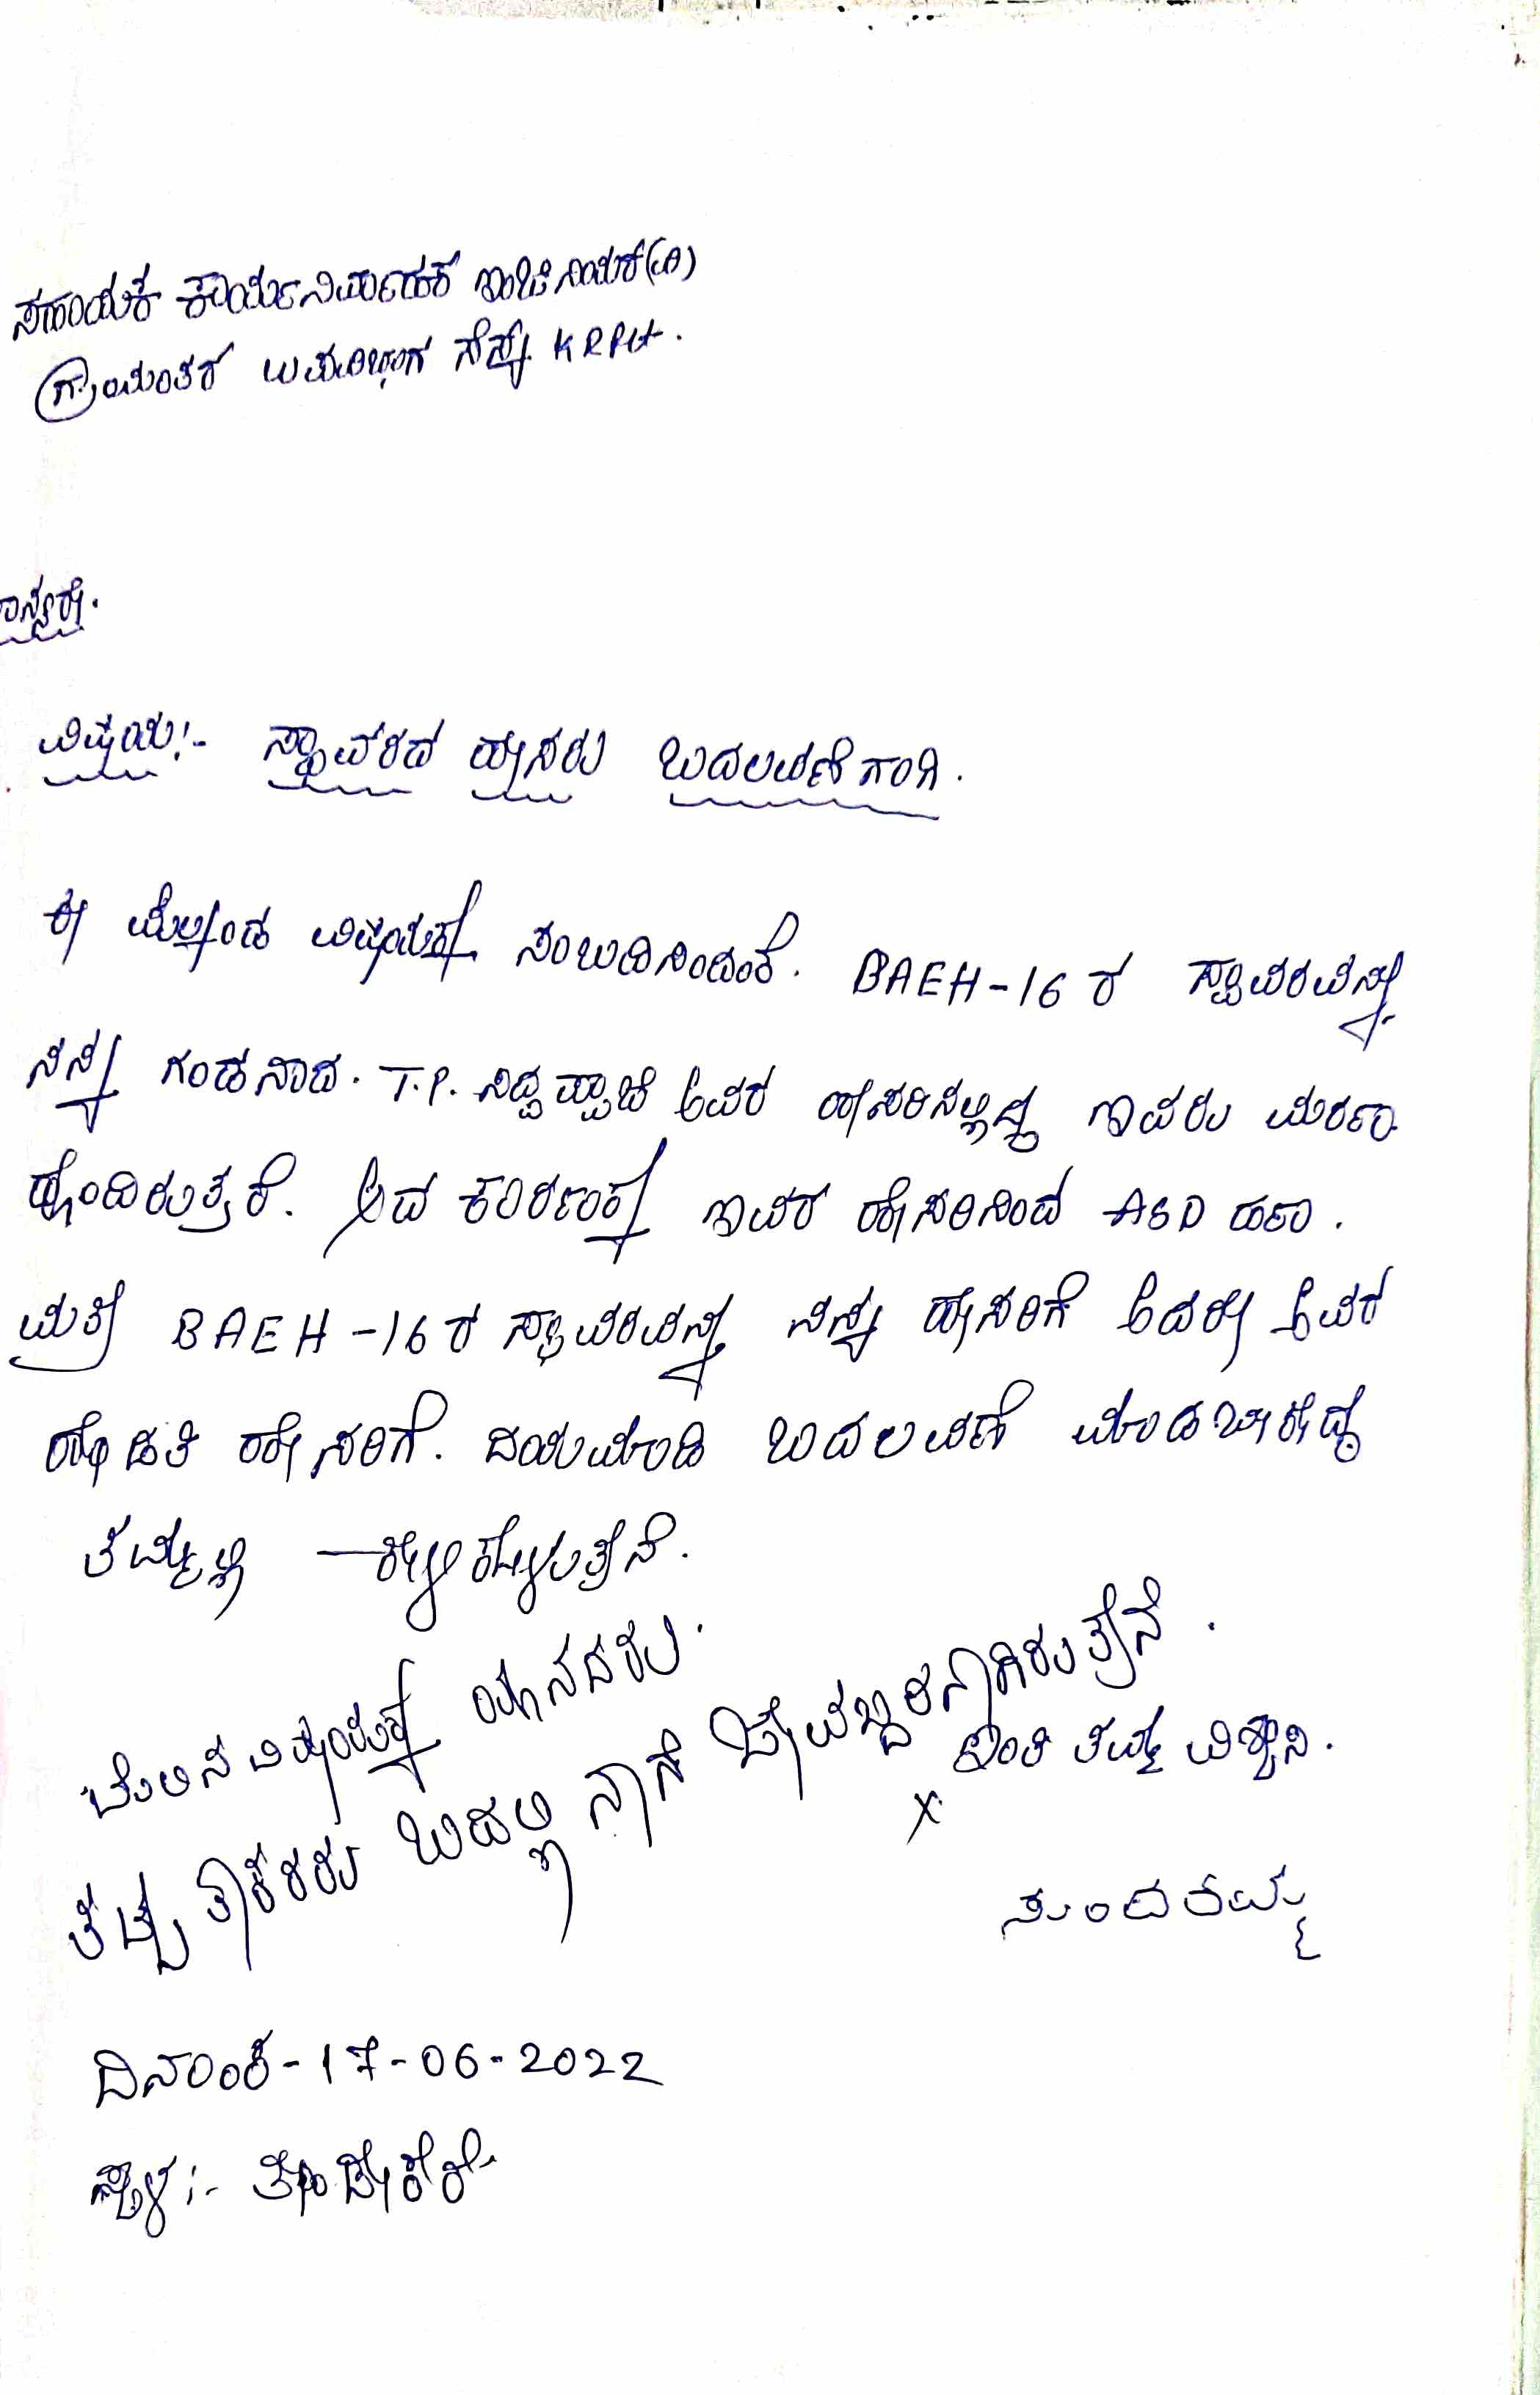 ಸಹಾಯಕ ಕಾರ್ಯನಿರ್ವಾಹಕ ಇಂಜಿನಿಯರ್(ವಿ)
ಗ್ರಾಮಾಂತರ ಉಪವಿಭಾಗ ಸೆಸ್ಕ್ KRPet.
ಾನ್ಯರೇ.
ವಿಷಯ:- ಸ್ಥಾವರದ ಹೆಸರು ಬದಲಾವಣೆಗಾಗಿ.
ಈ ಮೇಲ್ಕಂಡ ವಿಷಯಕ್ಕೆ ಸಂಬದಿಸಿಂದಂತೆ. BAEH-16 ರ ಸ್ಥಾವರವನ್ನು
ನನ್ನ ಗಂಡನಾದ. T.P. ಸಿದ್ದಪ್ಪಾಜಿ ಅವರ ಹೆಸರಿನಲ್ಲಿದ್ದು ಇವರು ಮರಣ
ಹೊಂದಿರುತ್ತಾರೆ. ಆದ ಕಾರಣಕ್ಕೆ ಇವರ ಹೆಸರಿನಿಂದ ASD ಹಣ.
ಮತ್ತು BAEH-16 ರ ಸ್ಥಾವರವನ್ನು ನನ್ನ ಹೆಸರಿಗೆ ಅವರ
ಹೆಂಡತಿ ಹೆಸರಿಗೆ. ದಯಮಾಡಿ ಬದಲಾವಣೆ ಮಾಡಬೇಕೆಂದು
ತಮ್ಮಲ್ಲಿ ಕೇಳಿಕೊಳ್ಳುತ್ತೇನೆ.
ಮೇಲಿನ ವಿಷಯಕ್ಕೆ ಯಾರಾದರು.
ತಕರಾರು ಬಂದಲ್ಲಿ ನಾನೆ ಜವಬ್ದಾರನಾಗಿರುತ್ತೇನೆ.
ಇಂತಿ ತಮ್ಮ ವಿಶ್ವಾಸಿ.
x
ಸುಂದರಮ್ಮ
ದಿನಾಂಕ-17-06-2022
ಸ್ಥಳ:- ತೆಂಡೇಕೆರೆ